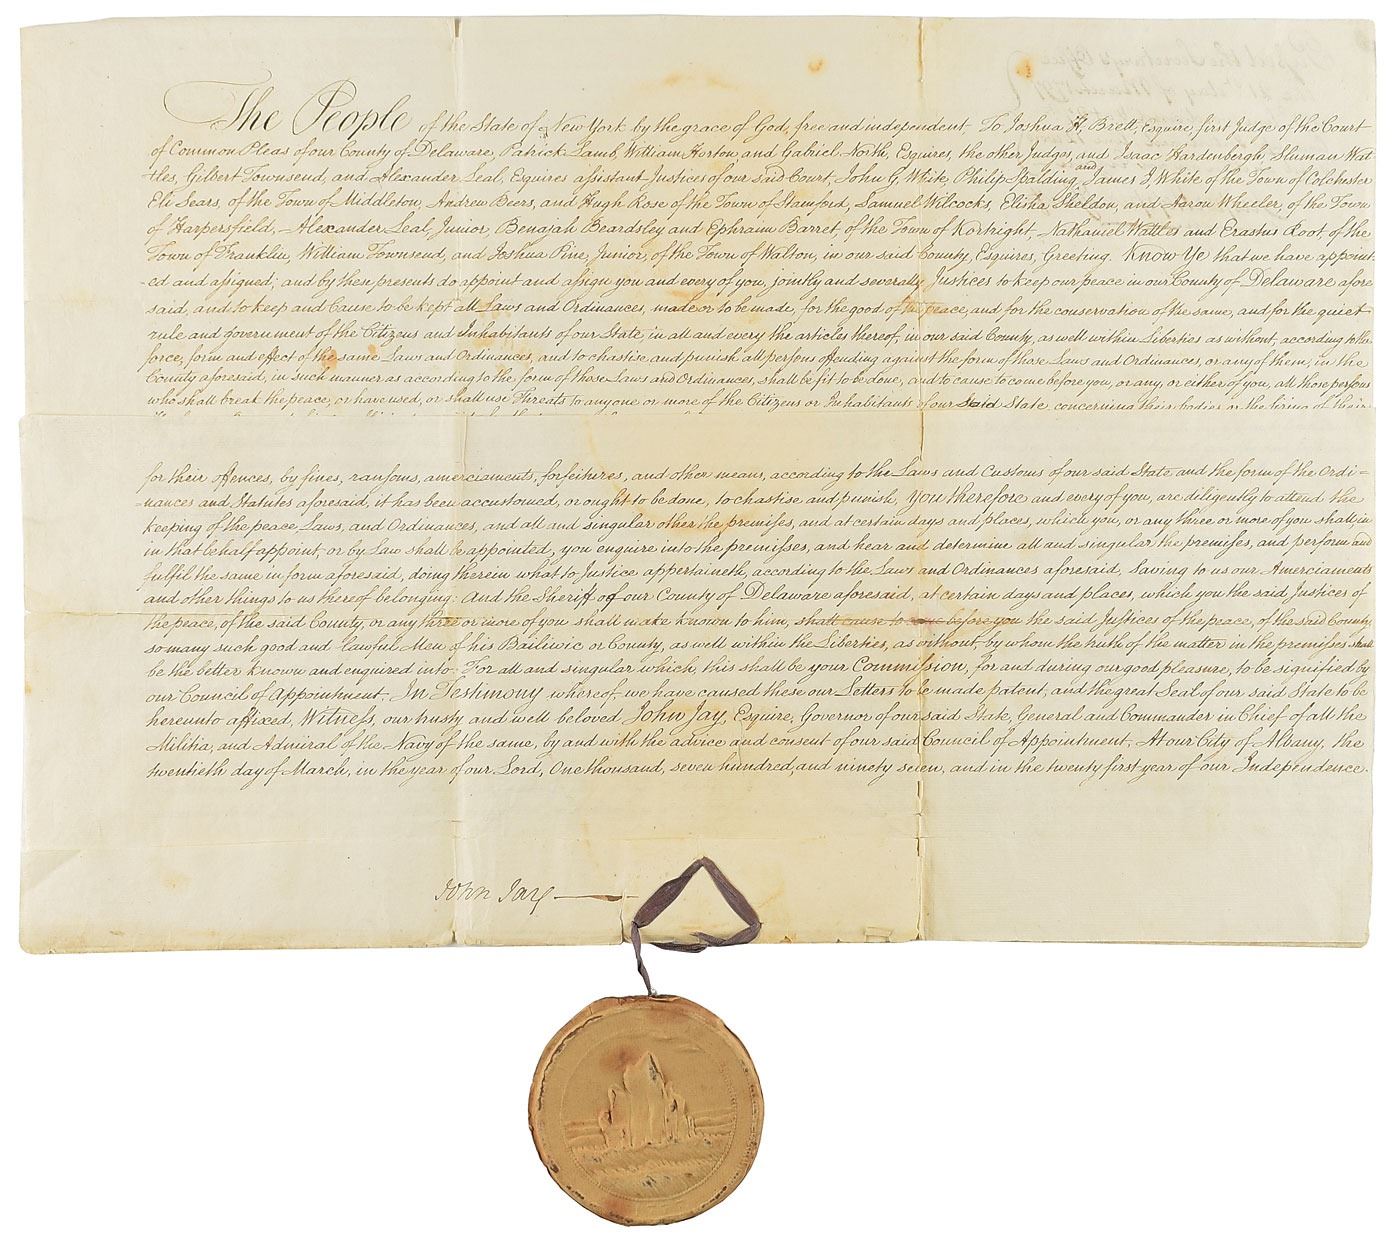 The People of the State of New York by the grace of God, free and independent To Joshua H, Brett, Esquire, first Judge of the Court
of Common Pleas of our County of Delaware, Patrick Lamb, William Horton, and Gabriel North, Esquires, the other Judges, and Isaac Hardenbergh, Sluman Wat-
tles, Gilbert Townsend, and Alexander Leal, Esquires assistant Justices of our said Court, John G, White, Philip Spalding, and James I, White of the Town of Colchester
Eli Sears, of the Town of Middleton, Andrew Beers, and Hugh Rose of the Town of Stamford, Samuel Wilcocks, Elisha Sheldon, and Aaron Wheeler, of the Town
of Harpersfield, Alexander Leal, Junior Benajah Beardsley and Ephraim Barret, of the Town of Kortright, Nathaniel Wattles and Erastus Root of the
Town of Franklin, William Townsend, and Joshua Pine, Junior, of the Town of Walton, in our said County, Esquires, Greeting. Know Ye that we have appoint
-ed and assigned; and by these presents do appoint and assign you and every of you, jointly and severally Justices to keep our peace in our County of Delaware afore
said, and to keep and Cause to be kept all Laws and Ordinances, made or to be made, for the good of the peace, and for the conservation of the same, and for the quiet
rule and government of the Citizens and Inhabitants of our State, in all and every the articles thereof, in our said County, as well within Liberties as without, according to the
force, form and effect of the same Laws and Ordinances, and to chastise and punish all persons offending against the form of those Laws and Ordinances, or any of them, in the
County aforesaid, in such manner as according to the form of those Laws and Ordinances, shall be fit to be done, and to cause to come before you, or any, or either of you, all those persons
who shall break the peace, or have used, or shall use Threats to any one or more of the Citizens or Inhabitants of our said State concerning their bodies or the firing of their
for their offences, by fines, ransoms, amerciaments, forfeitures, and other means, according to the Laws and Customs of our said State and the form of the Ordi=
=nances and Statutes aforesaid, it has been accustomed, or ought to be done, to chastise and punish, You therefore and every of you, are diligently to attend the
keeping of the peace, Laws, and Ordinances, and all and singular other the premises, and at certain days and places, which you, or any three or more of you shall, in
in that behalf appoint, or by Law shall be appointed, you enquire into the premisses, and hear and determine all and singular the premises, and perform and
fulfil the same in form aforesaid, doing therein what to Justice appertaineth, according to the Laws and Ordinances aforesaid, Saving to us our Amerciaments
and other things to us thereof belonging: And the Sheriff of our County of Delaware aforesaid, at certain days and places, which you the said Justices of
the peace, of the said County, or any three or more of you shall make known to him, shall cause to come before you the said Justices of the peace, of the said County
so many such good and lawful Men of his Bailiwic or County, as well within the Liberties, as without, by whom the truth of the matter in the premises shall
be the better known and enquired into. For all and singular which, this shall be your Commission, for and during our good pleasure, to be signified by
our Council of Appointment. In Testimony whereof, we have caused these our Letters to be made patent, and the great Seal of our said State to be
hereunto affixed, Witness, our trusty and well beloved John Jay, Esquire, Governor of our said State, General and Commander in Chief of all the
Militia, and Admiral of the Navy of the same, by and with the advice and consent of our said Council of Appointment. At our City of Albany, the
twentieth day of March, in the year of our Lord, One thousand, seven hundred, and ninety seven, and in the twenty first year of our Independence.
John Jay